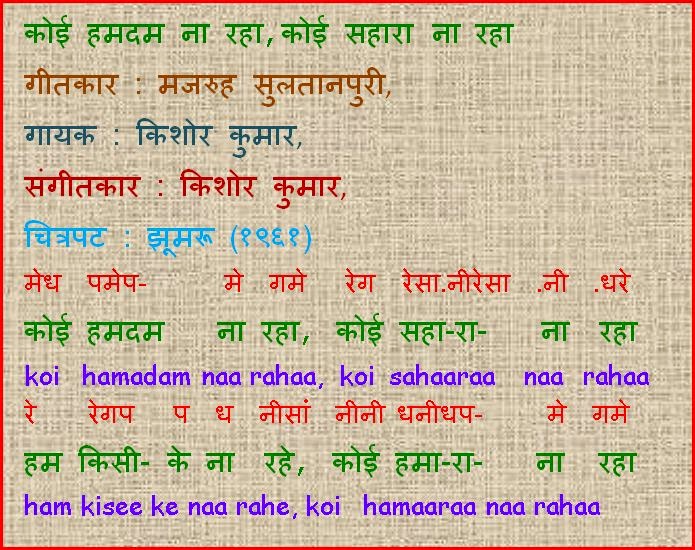 कोई हमदम ना रहा, कोई सहारा ना रहा
गीतकार : मजरुह सुलतानपुरी,
गायक : किशोर कुमार,
संगीतकार : किशोर कुमार,
चित्रपट : झूमरू (१९६१)
मेध पमेप- मे गमे रेग रेसा.नीरेसा .नी .धरे
कोई हमदम ना रहा, कोई सहा-रा- ना रहा
koi hamadam naa rahaa, koi sahaaraa naa rahaa
रे रेगप प ध नीसां नीनी धनीधप- मे गमे
हम किसी- के ना रहे, कोई हमा-रा- ना रहा
ham kisee ke naa rahe, koi hamaaraa naa rahaa